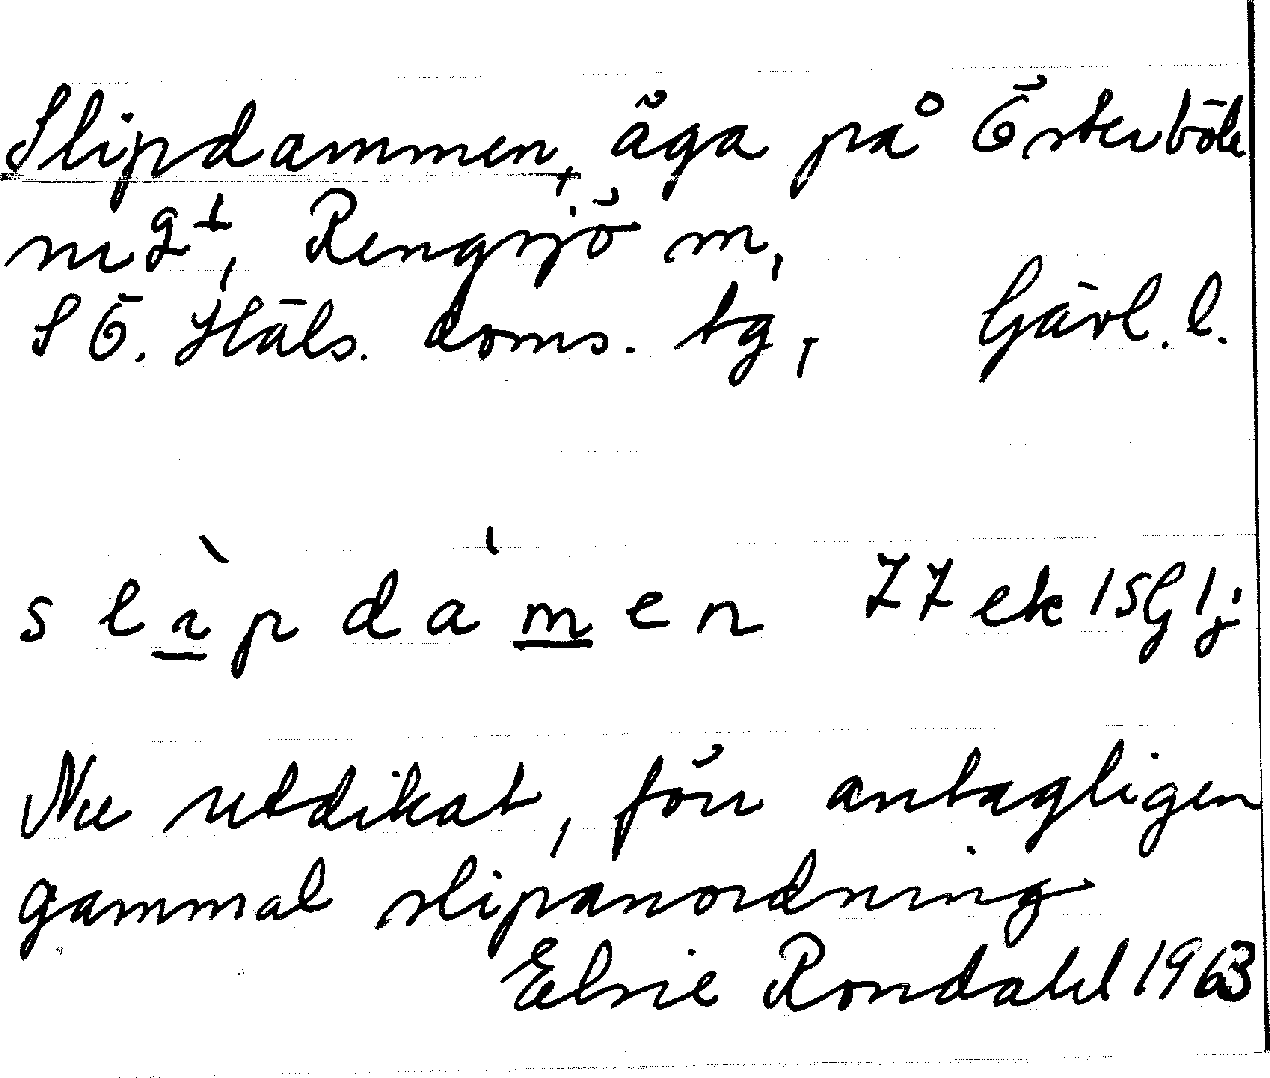 Slipdammen, äga på Österböle
n:r 2⊥, Rengsjö sn,
S Ö. Häls. doms. tg, Gävl. l.
slìpdámen 77 ek 15G 1j:
Nu utdikat, förr antagligen
gammal slipanordning
Elsie Rondahl 1963